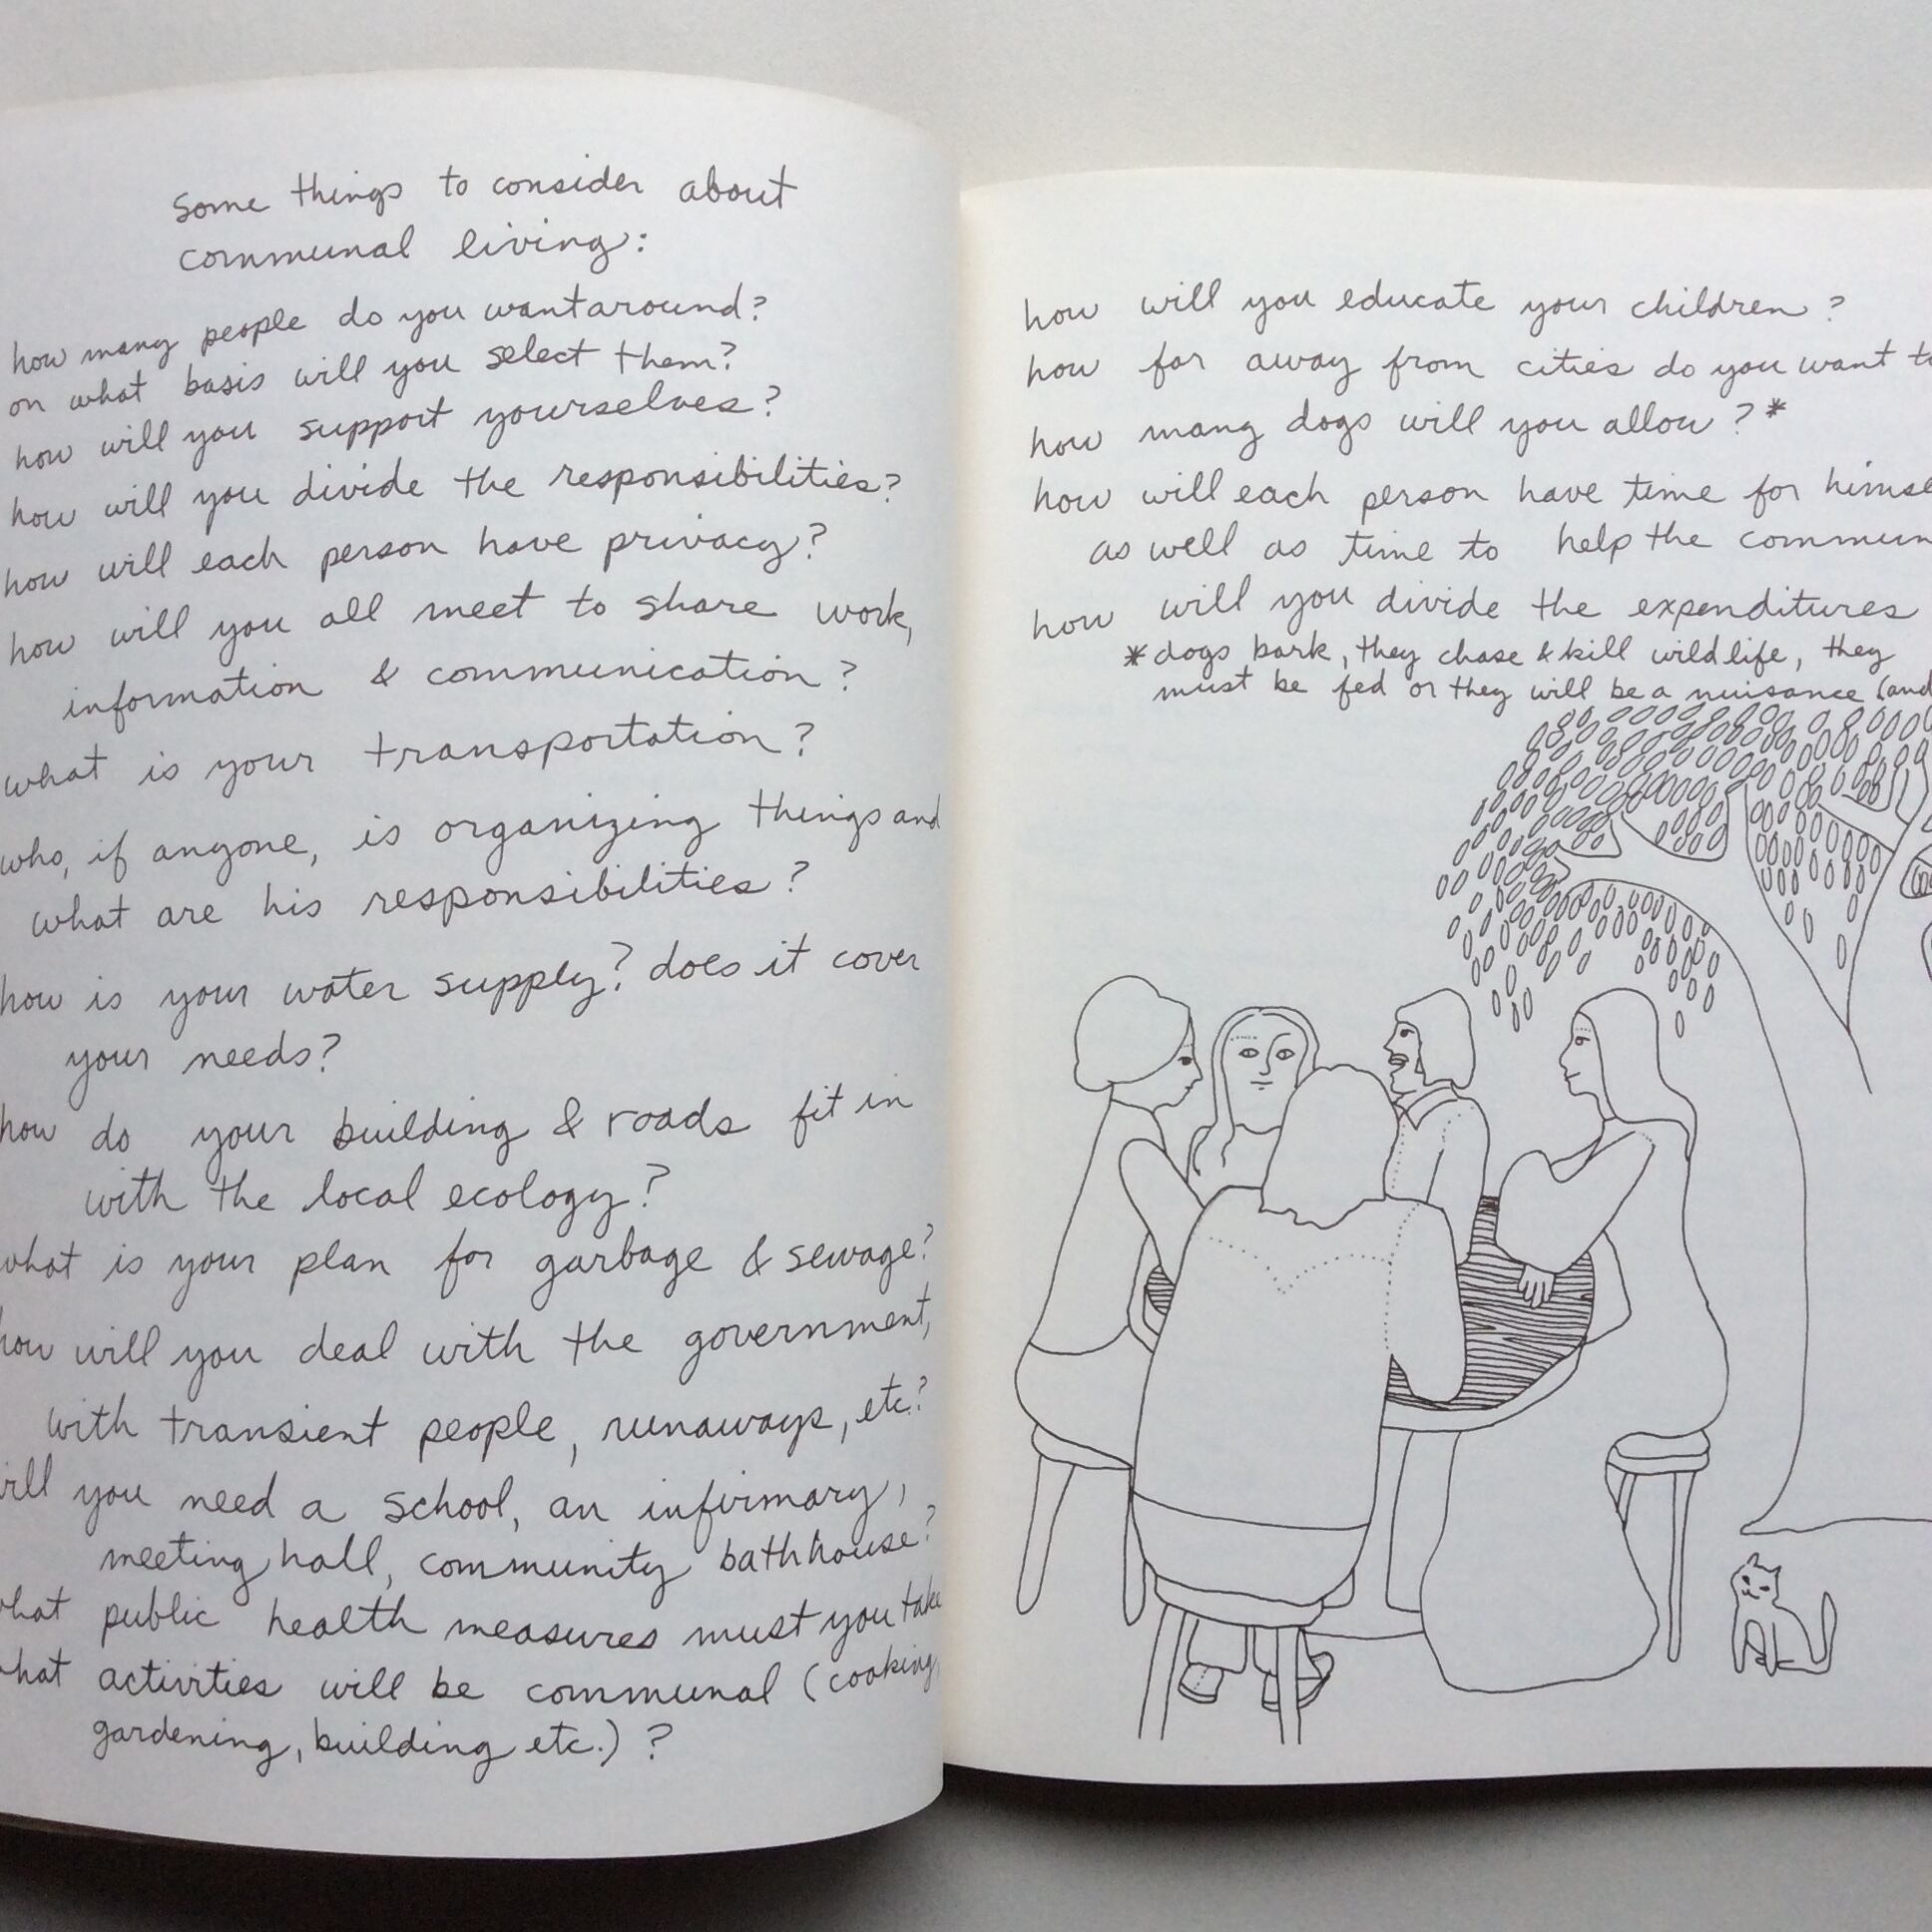 some things to consider about
communal living:
how many people do you want around?
on what basis will you select them?
how will you support yourselves?
how will you divide the responsibilities?
how will each person have privacy?
how will you all meet to share work,
information & communication?
what is your transportation?
who, if anyone, is organizing things and
what are his responsibilities?
how is your water supply? does it cover
your needs?
how do your building & roads fit in
with the local ecology?
what is your plan for garbage & sewage?
how will you deal with the government,
with transient people, runaways, etc.?
ill you need a school, an infirmary,
meeting hall, community bathhouse?
what public health measures must you take
what activities will be communal (cooking,
gardening, building etc.) ?
how will you educate your children?
how far away from cities do you want to
how many dogs will you allow?*
how will each person have time for himse
as well as time to help the commun
how will you divide the expenditures
*dogs bark, they chase & kill wildlife, they
must be fed or they will be a nuisance (and